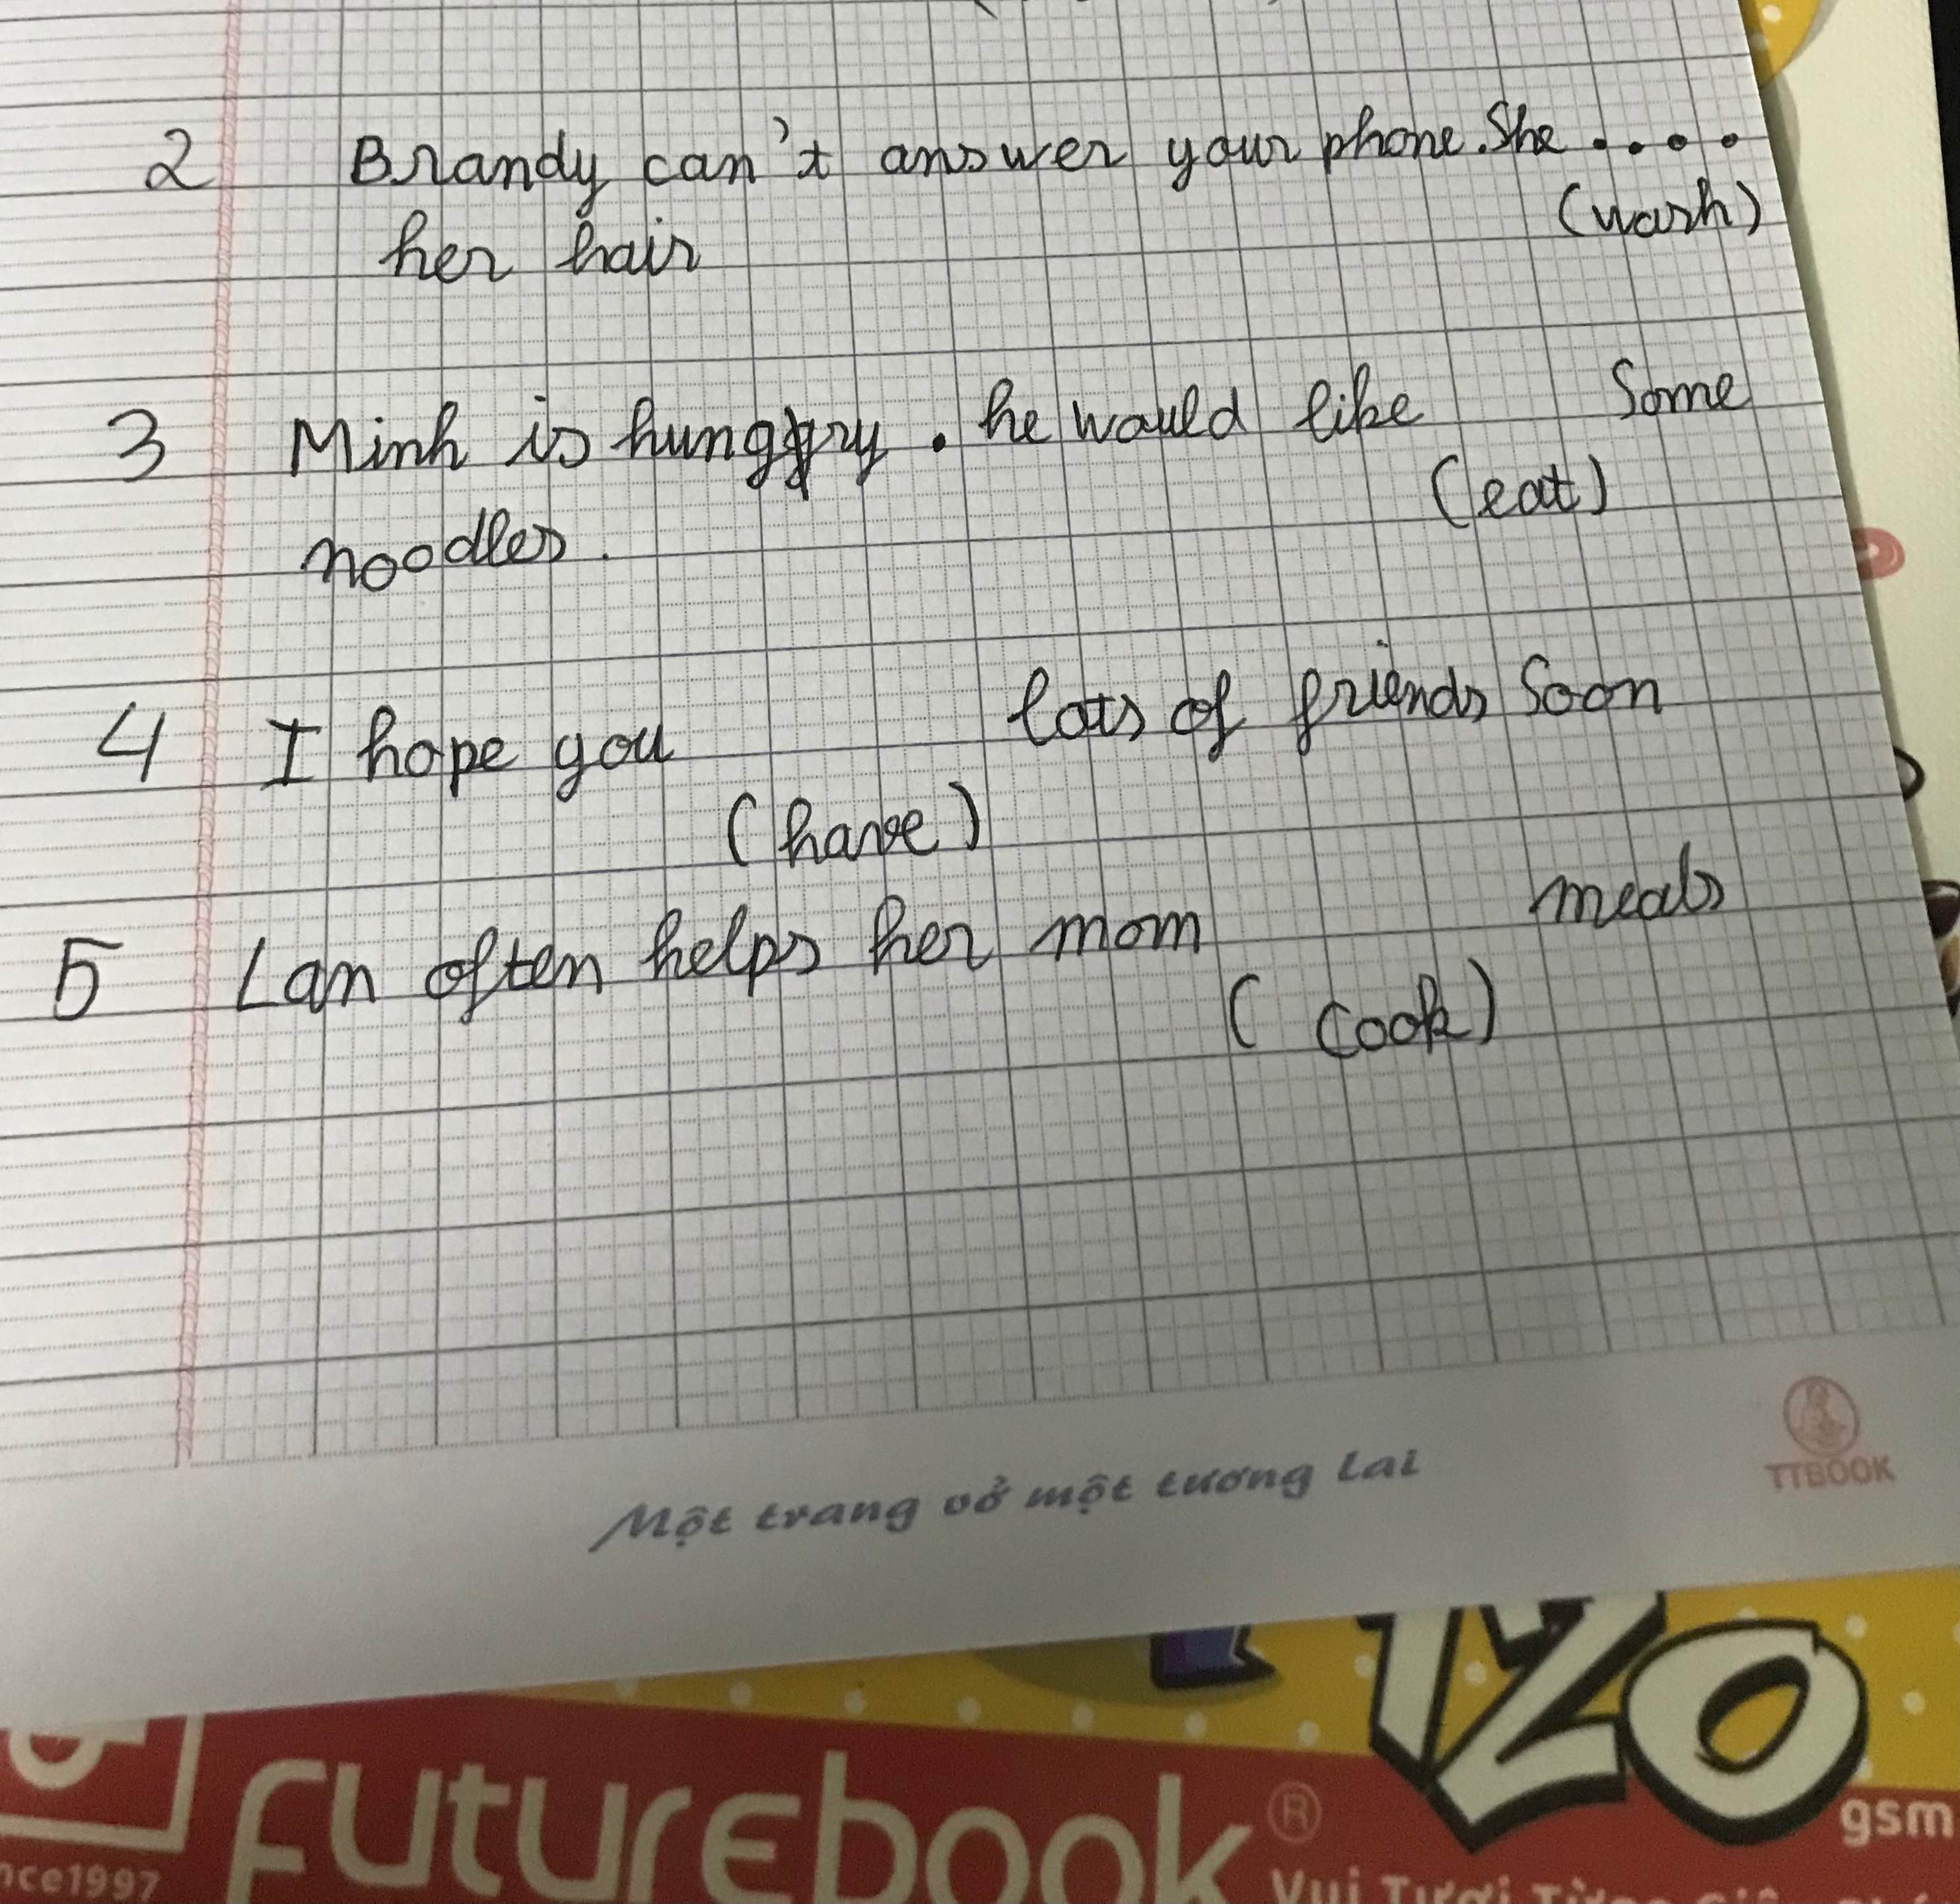 2 Brandy can't answer your phone. She ....
(wash)
her hair
3 Minh is hungry. he would like some
(eat)
noodles.
4 I hope you lots of friends soon
(have)
5 Lan often helps her mom meals
(cook)
Một trang vở một tương lai
TTBOOK
120
futurebook®
gsm
nce1997
Vui Tươi